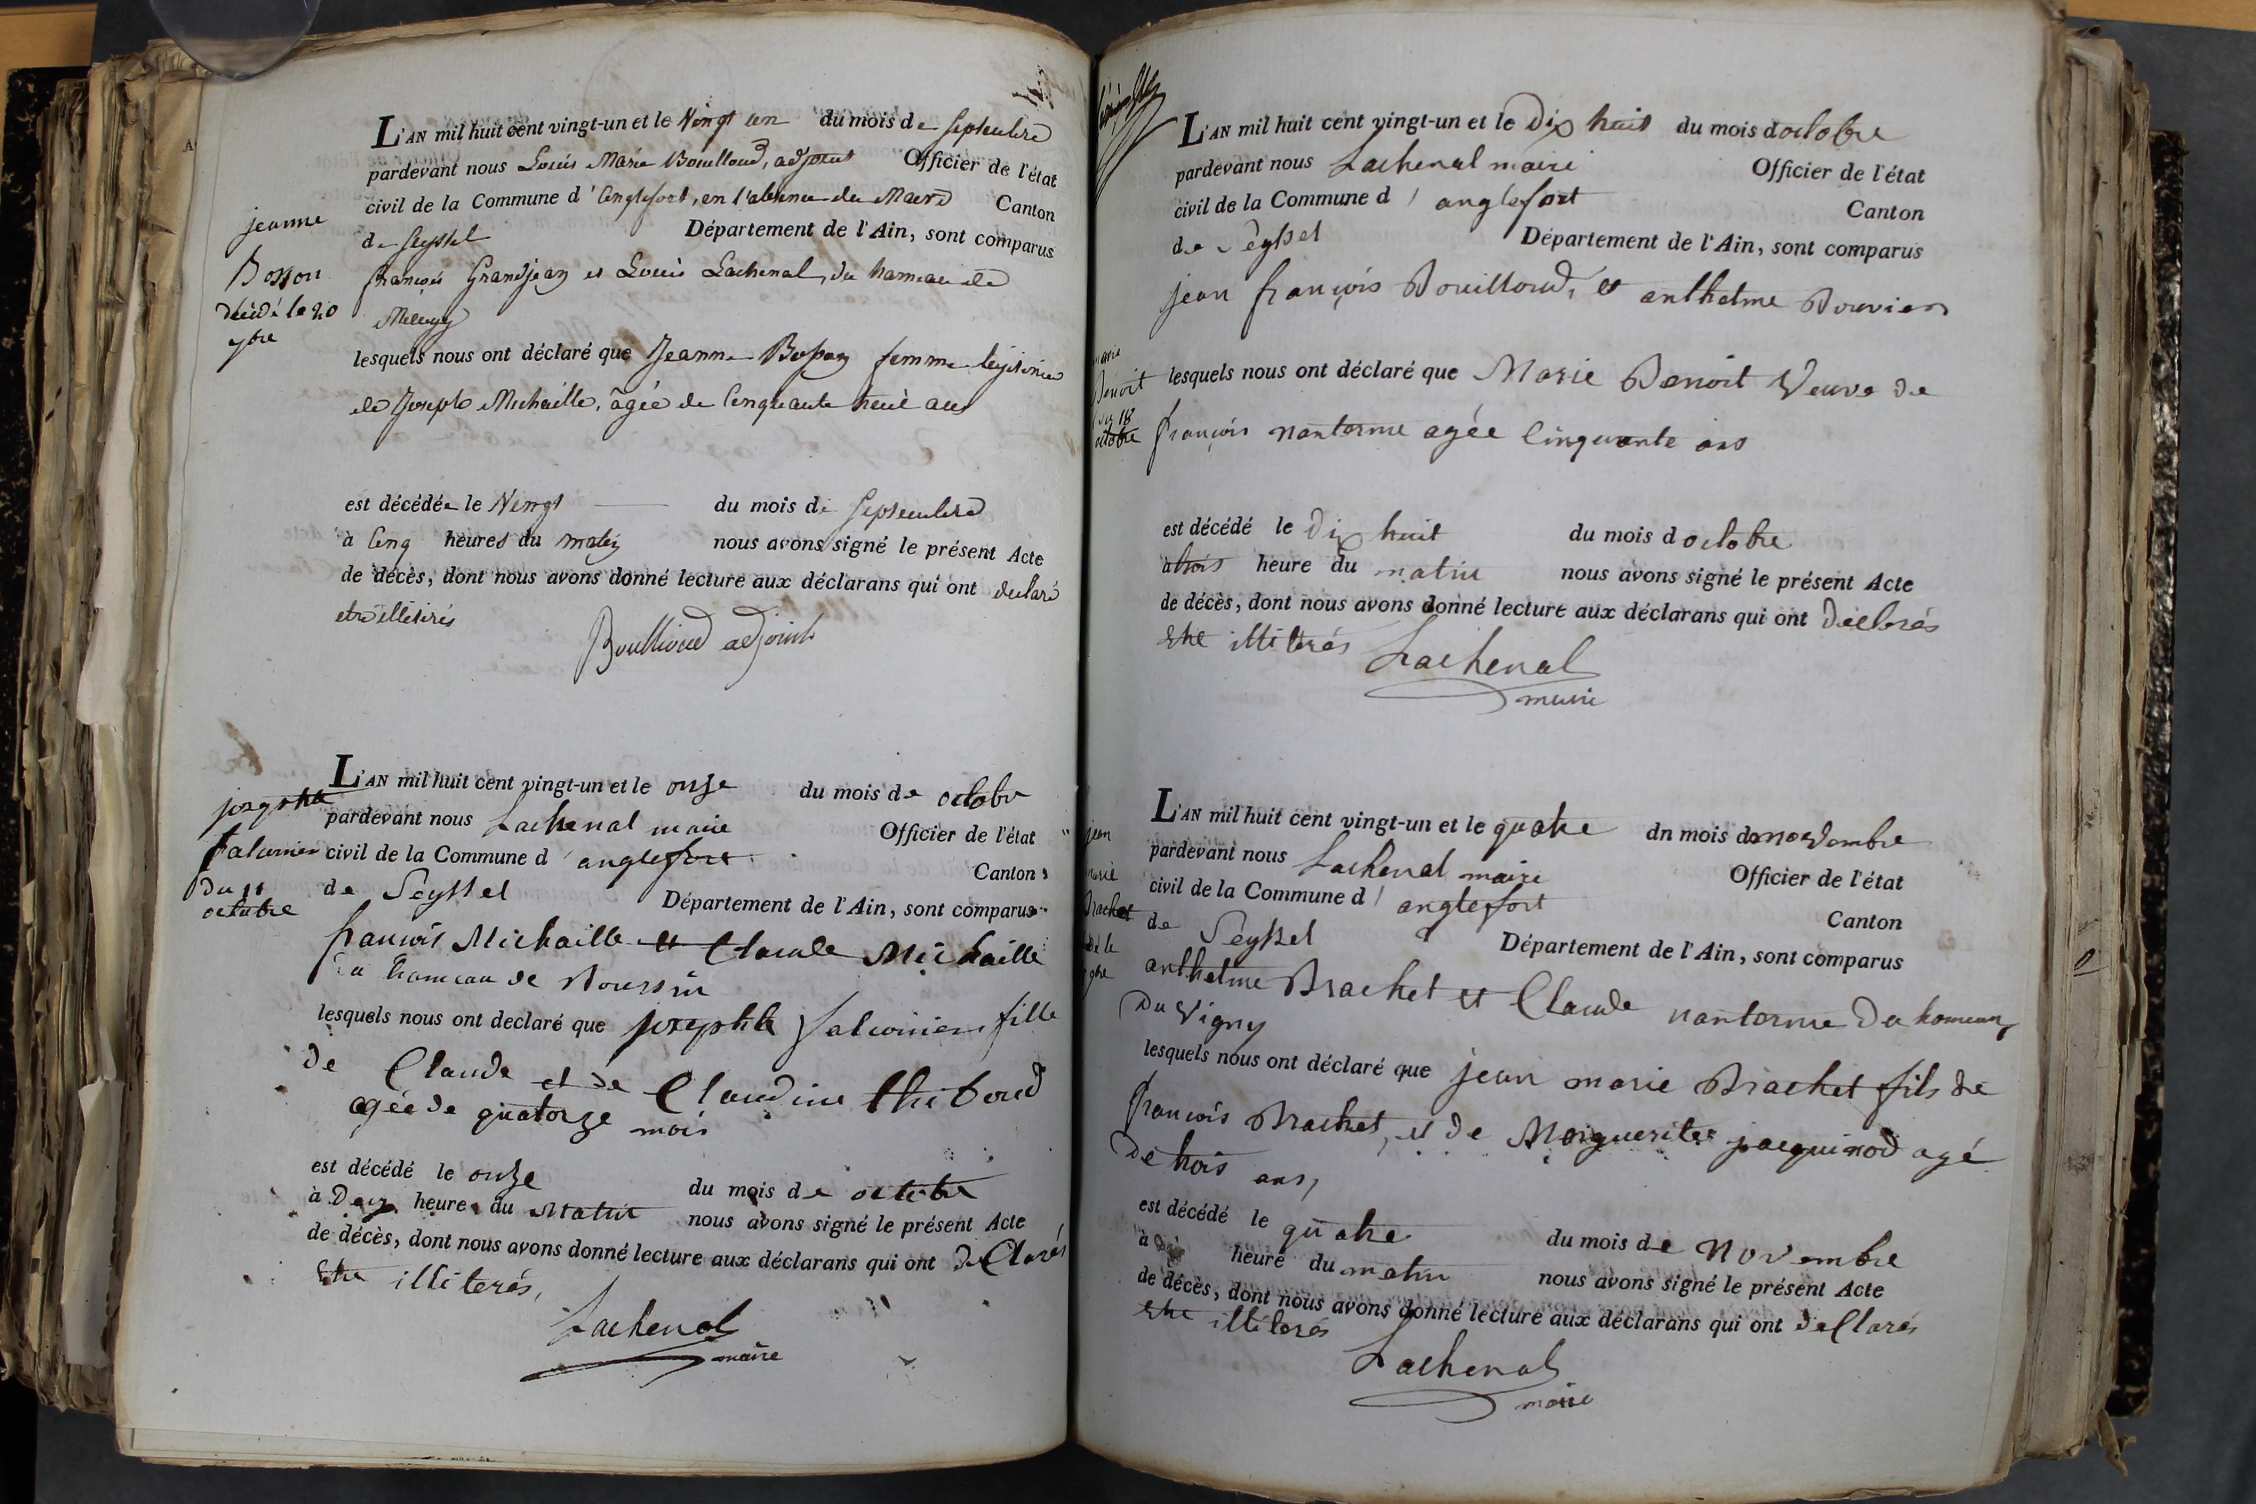 jeanne
Bosson
décédé le 20
7bre
L'AN mil huit cent vingt-un et le Vingt un du mois de Septembre
pardevant nous Louis Marie Bouilloud, adjoint Officier de l'état
civil de la Commune d'Anglefort, en l'absence du Maire Canton
de Seyssel Département de l'Ain, sont comparus
françois Grandjean et Louis Lachenal, du hameau de
lesquels nous ont déclaré que Jeanne Bosson femme legitime
de Joseph Michaille, âgée de Cinquante huit ans
est décédée le Vingt du mois de Septembre
à Cinq heures du matin nous avons signé le présent Acte
de décès, dont nous avons donné lecture aux déclarans qui ont declaré
etre illitirés
Bouilloud adjoint
josephte
falconier
du 11
octobre
L'AN mil huit cent vingt-un et le onze du mois de octobre
pardevant nous Lachenal maire Officier de l'état
civil de la Commune d'anglefort Canton
de Seyssel Département de l'Ain, sont comparus
francois Michaille et Claude Michaille
du hameau de Boursin
lesquels nous ont declaré que josephte falconier fille
de Claude et de Claudine thiboud
agée de quatorze mois
est décédé le onze du mois de octobre
à Deux heure du Matin nous avons signé le présent Acte
de décès, dont nous avons donné lecture aux déclarans qui ont déClarés
etre illiterés,
Lachenal
maire
L'AN mil huit cent vingt-un et le Dix huit du mois doctobre
pardevant nous Lachenal maire Officier de l'état
civil de la Commune d'anglefort Canton
de Seyssel Département de l'Ain, sont comparus
jean françois Bouilloud, et anthelme Bouvier
Benoit
18
octobre
lesquels nous ont déclaré que Marie Benoit Veuve de
françois nanterme agée Cinquante ans
est décédé le Dix huit du mois doctobre
à trois heure du matin nous avons signé le présent Acte
de décès, dont nous avons donné lecture aux déclarans qui ont Déclarés
etre illiterés
Lachenal
maire
jean
marie
Brachet
L'AN mil huit cent vingt-un et le quatre dn mois de novembre
pardevant nous Lachenal maire Officier de l'état
civil de la Commune d'anglefort Canton
de Seyssel Département de l'Ain, sont comparus
anthelme Brachet et Claude nanterme du hameau
Du Vigny
lesquels nous ont déclaré que jean marie Brachet fils de
francois Brachet, et de Marguerite jacquinod agé
De trois ans,
est décédé le quatre du mois de Novembre
à heure du matin nous avons signé le présent Acte
de décès, dont nous avons donné lecture aux déclarans qui ont déClarés
etre illiterés
Lachenal
maire